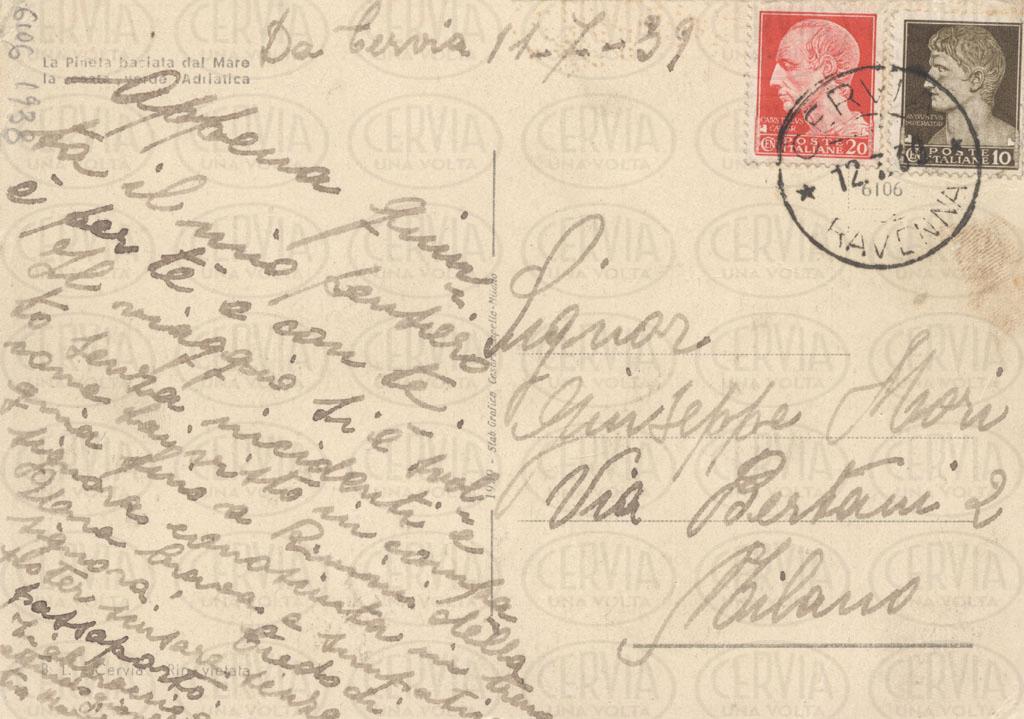 6106 1938
Da Cervia 11-7-39
La Pineta baciata dal Mare
la verde Adriatica
Appena giun
ta il mio pensiero
è per te e con te
Il viaggio si è svol
to senza incidenti e
come hai visto in compa
gnia fino a Rimini della
signora conosciuta in treno
Buona brava e simpati
signora. Credo di
poter senza
passaporto
CESARE
CENT POSTE ITALIANE 20
AVGVSTVS
IMPERATOR
POSTE ITALIANE 10
CERVIA
12.7.39
6106
RAVENNA
Signor
Giuseppe Mori
Via Bertani 2
Milano
Stab Grafico Cesare Capello - Milano
B. L. Cervia Rip. vietata
CERVIA
UNA VOLTA